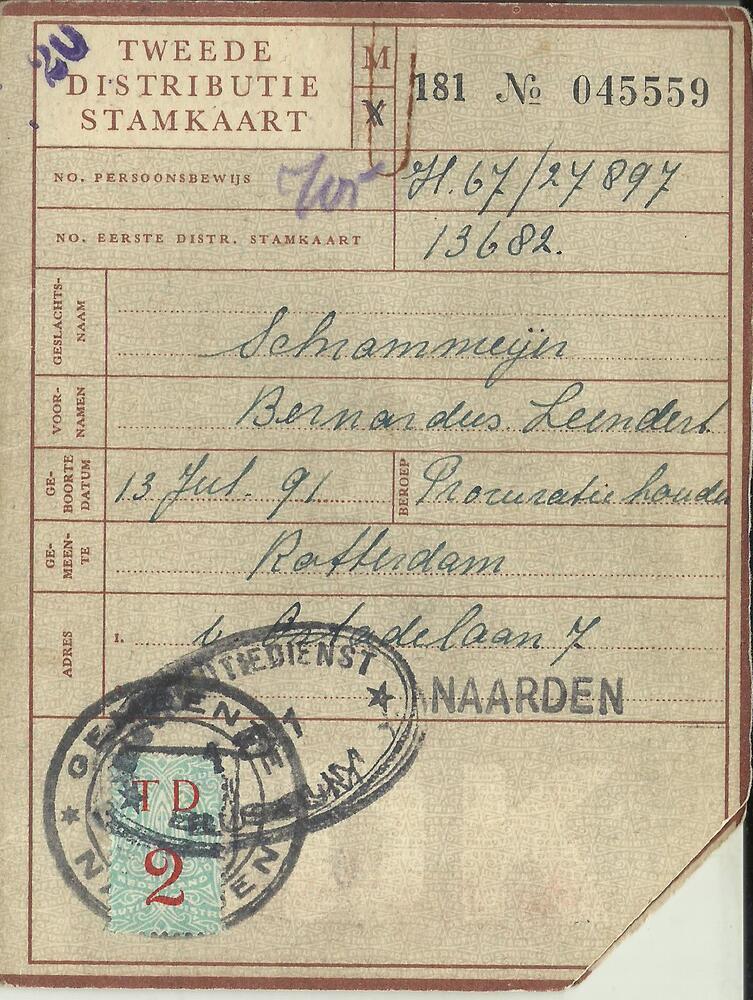 20
TWEEDE
DISTRIBUTIE
STAMKAART
M
X
181 № 045559
NO. PERSOONSBEWIJS
H.67/27897
NO. EERSTE DISTR. STAMKAART
13682.
GESLACHTS-
NAAM
Schrammeijer
VOOR-
NAMEN
Bernardus Leendert
GE-
BOORTE
DATUM
13 Jul. 91
BEROEP
Procuratie houder
GE-
MEEN-
TE
Rotterdam
ADRES
1.
v. Ostadelaan 7
NAARDEN
TIEDIENST
GEMEENTE
TD
2